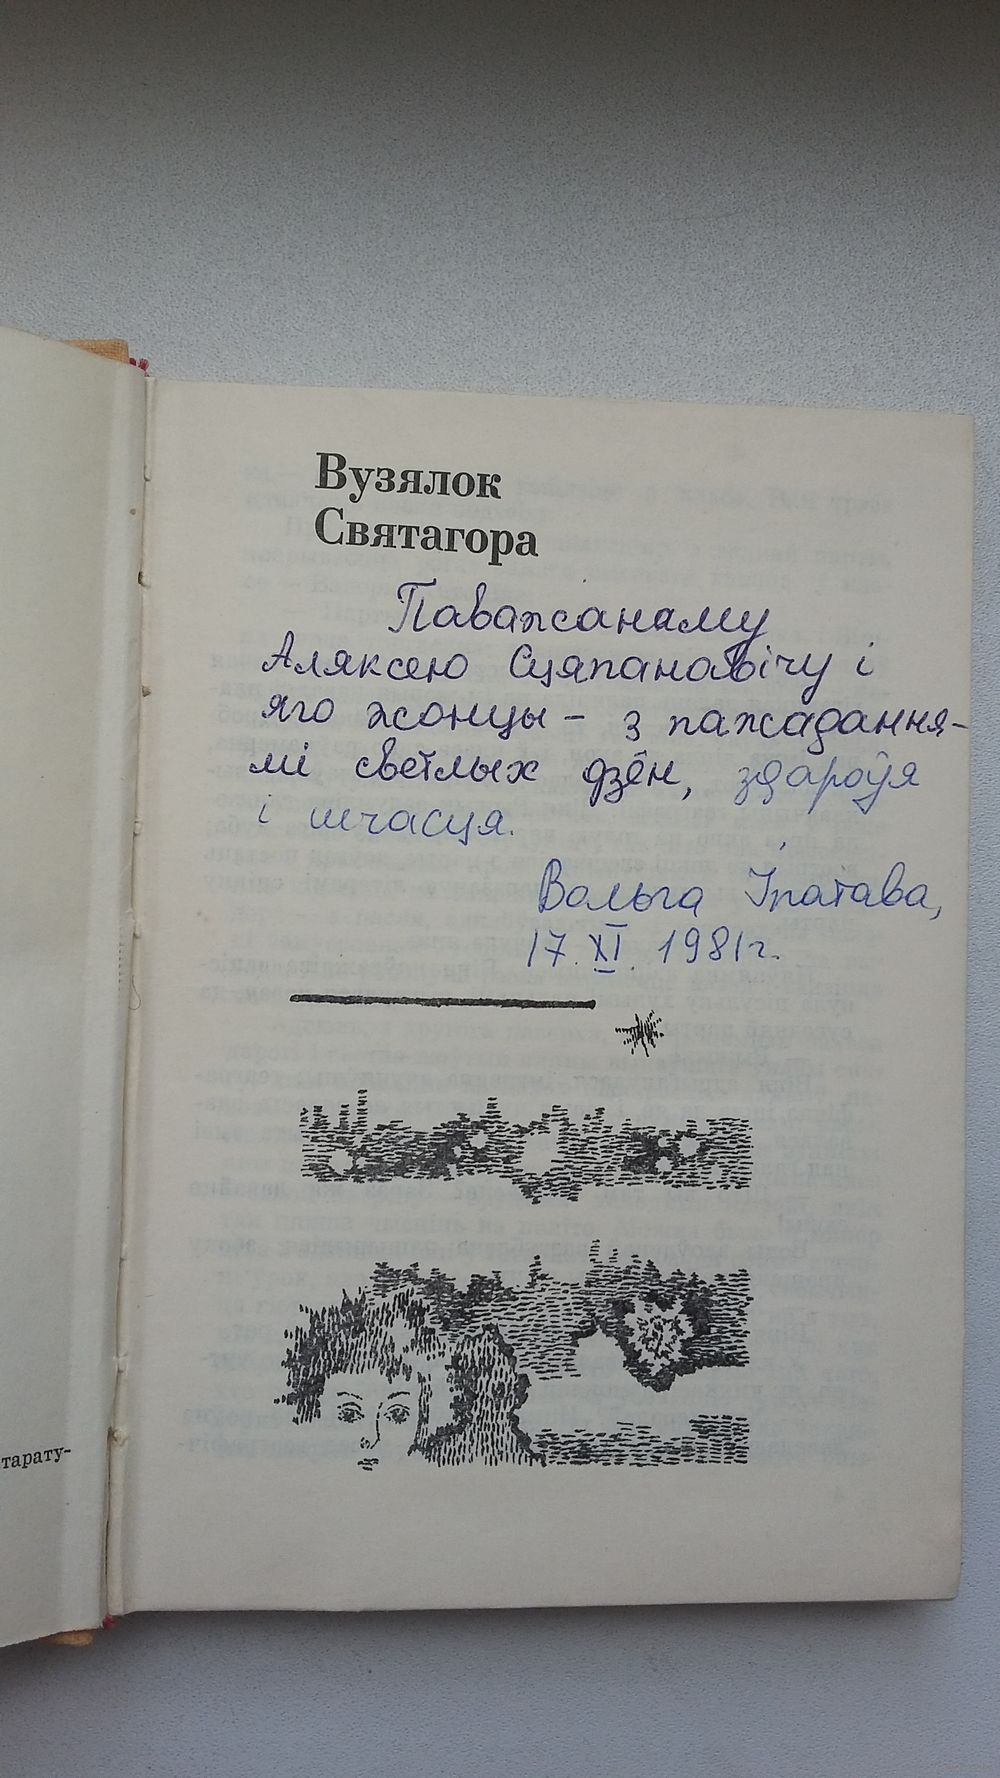 Вузялок
Святагора
Паважанаму
Аляксею Сцяпанавічу і
яго жонцы – з пажадання-
мі светлых дзён, здароўя
і шчасця.
Вольга Іпатава,
17. XI. 1981г.
тарату-